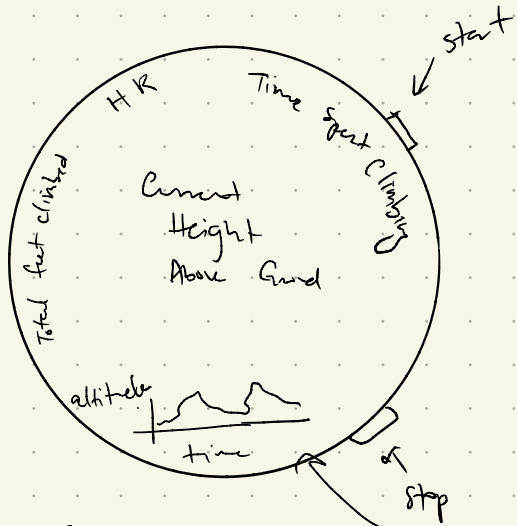 start
HR
Time Spent Climbing
Total feet climbed
Current
Height
Above Ground
altitude
time
Stop